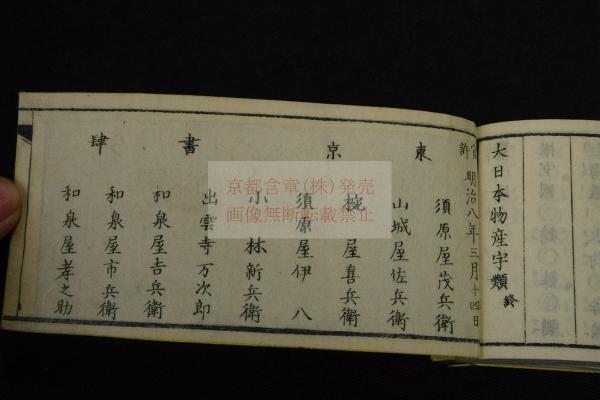 大日本物産字類 終
官許 明治八年三月十四日
東京書肆
須原屋茂兵衛
山城屋佐兵衛
椀屋喜兵衛
須原屋伊八
小林新兵衛
出雲寺万次郎
和泉屋吉兵衛
和泉屋市兵衛
和泉屋孝之助
京都含章(株)発売
画像無断転載禁止